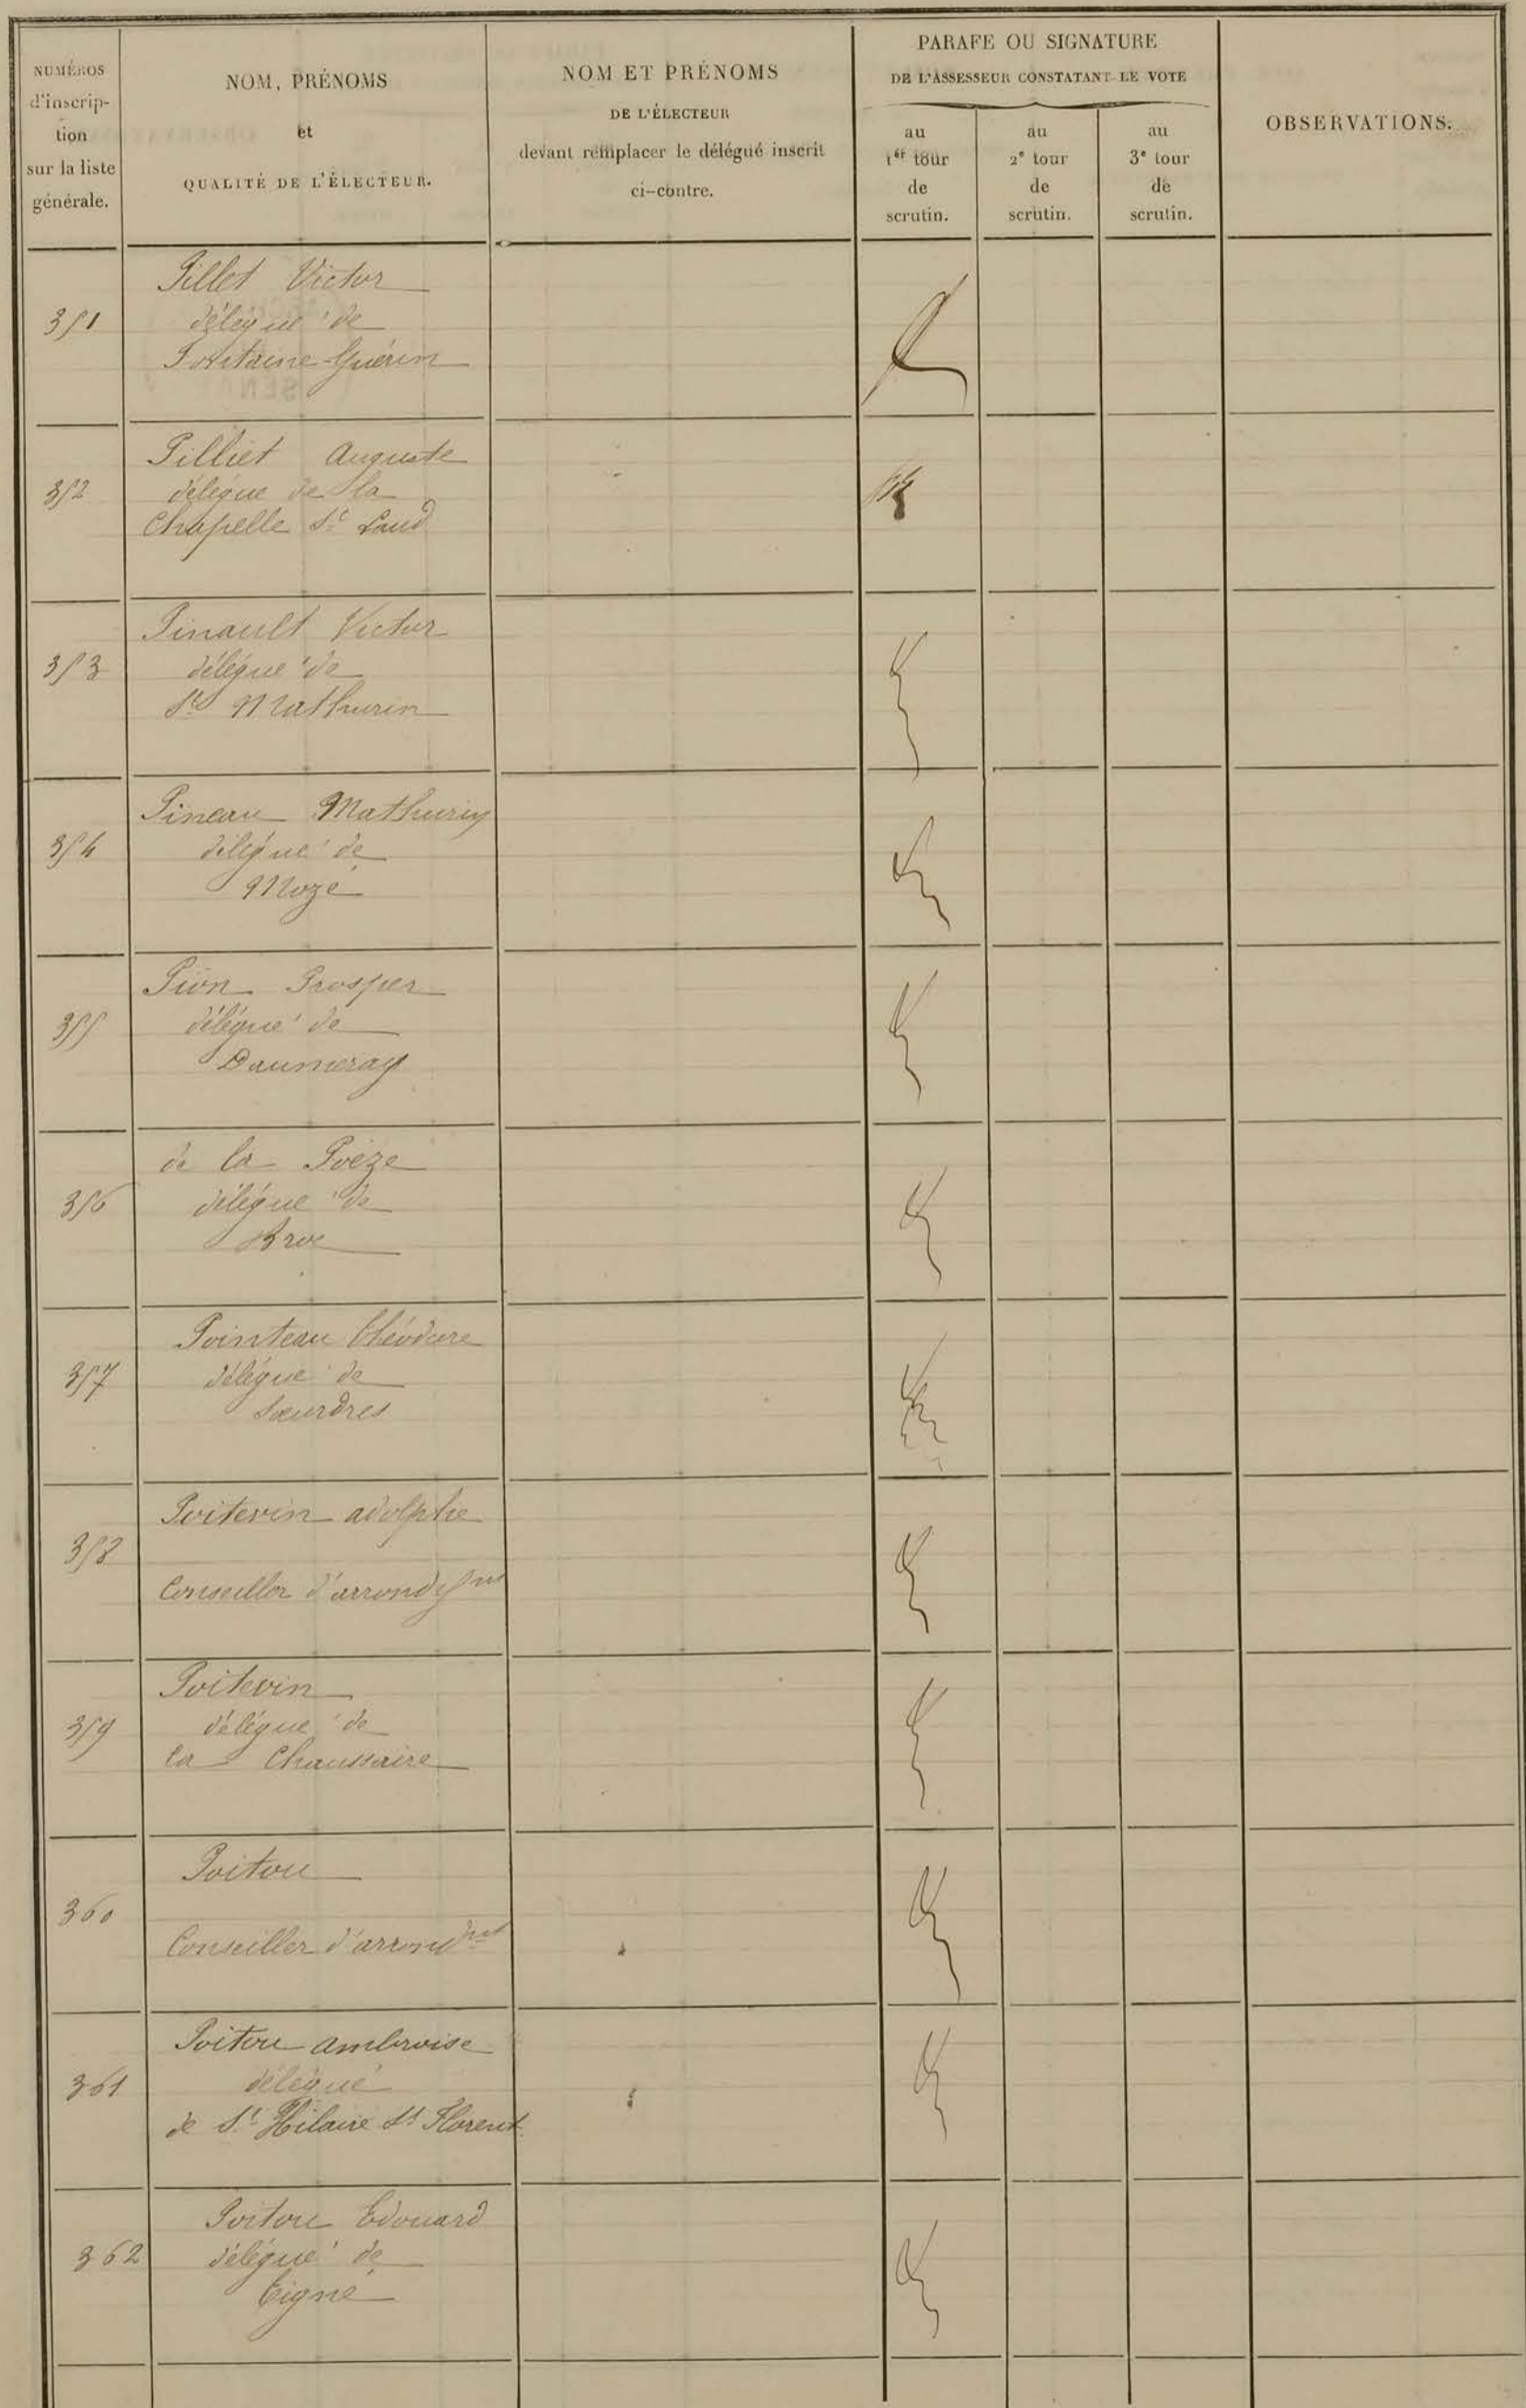 NUMÉROS
d'inscrip-
tion
sur la liste
générale.
NOM, PRÉNOMS
et
QUALITÉ DE L'ÉLECTEUR.
NOM ET PRÉNOMS
DE L'ÉLECTEUR
devant remplacer le délégué inscrit
ci-contre.
PARAFE OU SIGNATURE
DE L'ASSESSEUR CONSTATANT LE VOTE
au
1er tour
de
scrutin.
au
2e tour
de
scrutin.
au
3e tour
de
scrutin.
OBSERVATIONS.
351
Pillet Victor
délégué de
Fontaine-Guérin
352
Pilliet Auguste
délégué de la
Chapelle St Laud
353
Pinault Victor
délégué de
St Mathurin
354
Pineau Mathurin
délégué de
Mozé
355
Pion Prosper
délégué de
Daumeray
356
de la Poëze
délégué de
Broc
357
Pointeau Théodore
délégué de
Sœurdres
358
Poitevin adolphe
Conseiller d'arrondissmt
359
Poitevin
délégué de
la Chaussaire
360
Poitou
Conseiller d'arrondmt
361
Poitou ambroise
délégué
de St Hilaire St Florent
362
Poitou Edouard
délégué de
Tigné